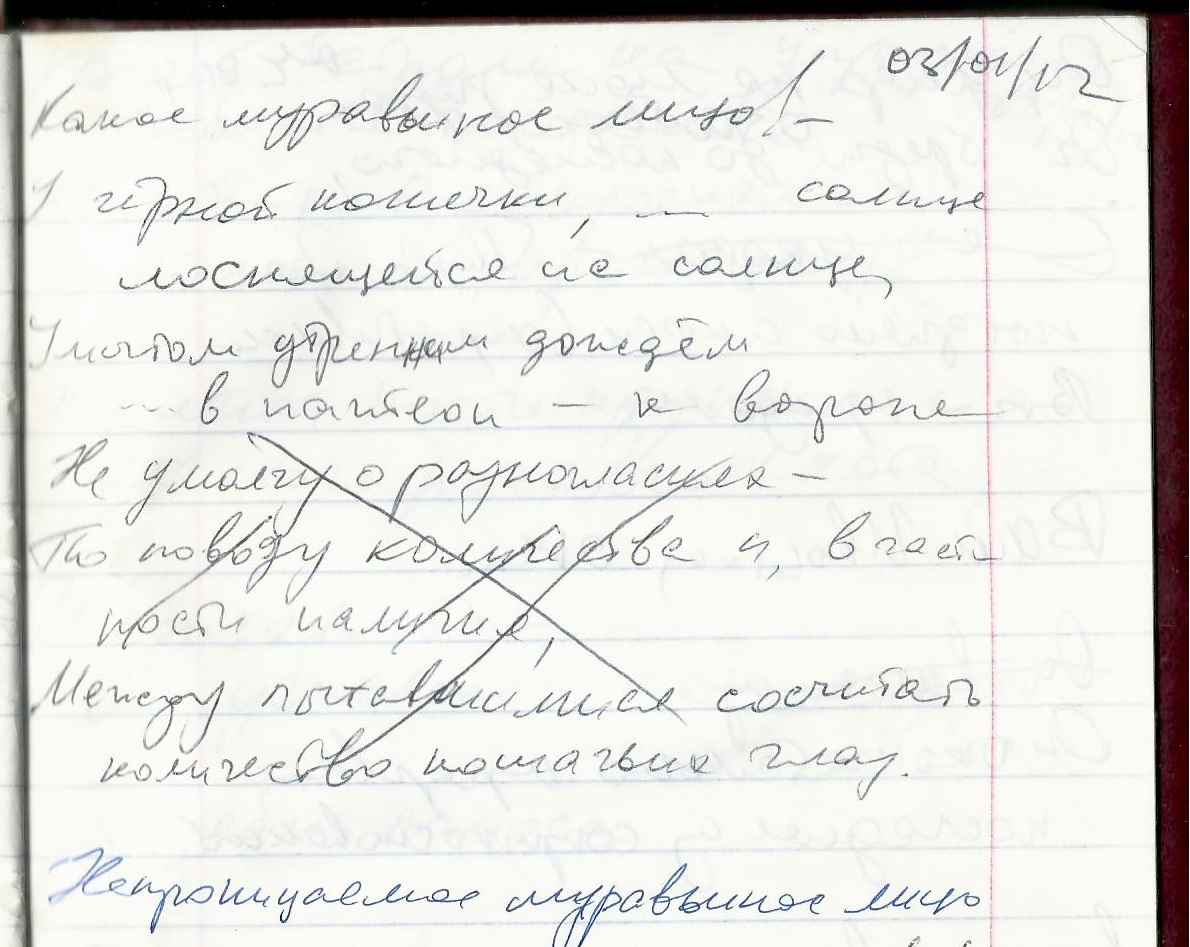 03/01/12
Какое муравьиное лицо! –
У чёрной кошечки, — солнце
лоснящейся на солнце,
Умытом утренним дождём
... в папье — к вороне
Не умолчу о разногласиях –
По поводу количества и, в част
ности наличия,
Между пытавшимися сосчитать
количество кошачьих глаз.
Непроницаемое муравьиное лицо